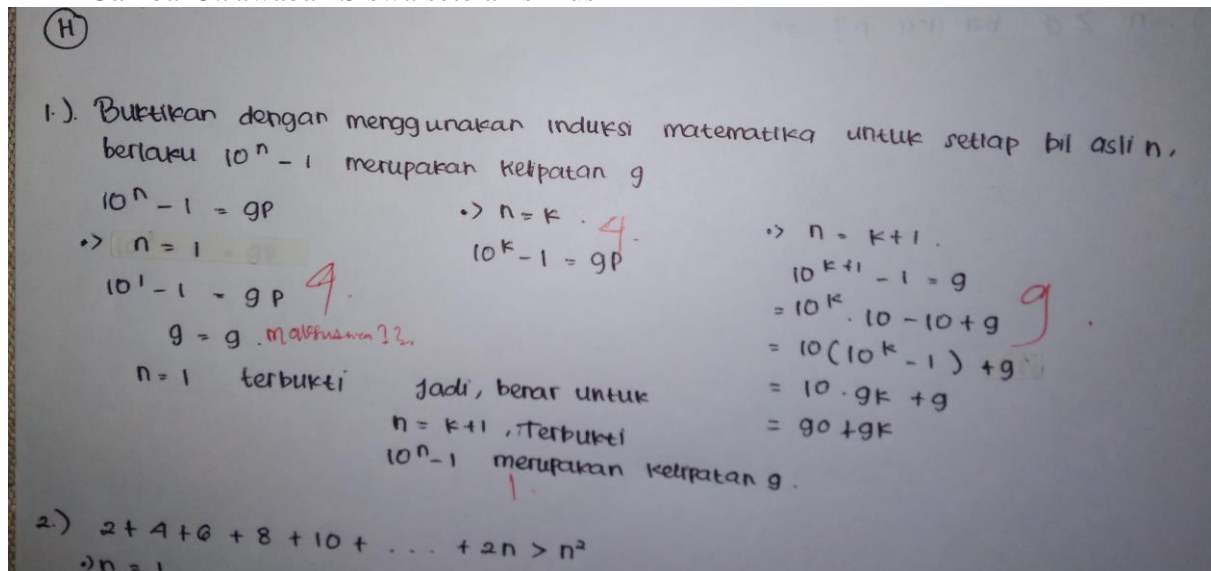 H
1.). Buktikan dengan menggunakan induksi matematika untuk setiap bil asli n,
berlaku 10ⁿ - 1 merupakan kelipatan 9
10ⁿ - 1 = 9P
•> n = 1
10¹ - 1 = 9P 4.
9 = 9.
n = 1 terbukti
•> n = k. 4.
10ᵏ - 1 = 9P
•> n = k+1.
10ᵏ⁺¹ - 1 = 9
= 10ᵏ. 10 - 10 + 9 9.
= 10(10ᵏ - 1) + 9
= 10 . 9k + 9
= 90 + 9k
Jadi, benar untuk
n = k+1, Terbukti
10ⁿ-1 merupakan kelipatan 9.
1.
2.) 2 + 4 + 6 + 8 + 10 + ... + 2n > n²
•> n = 1